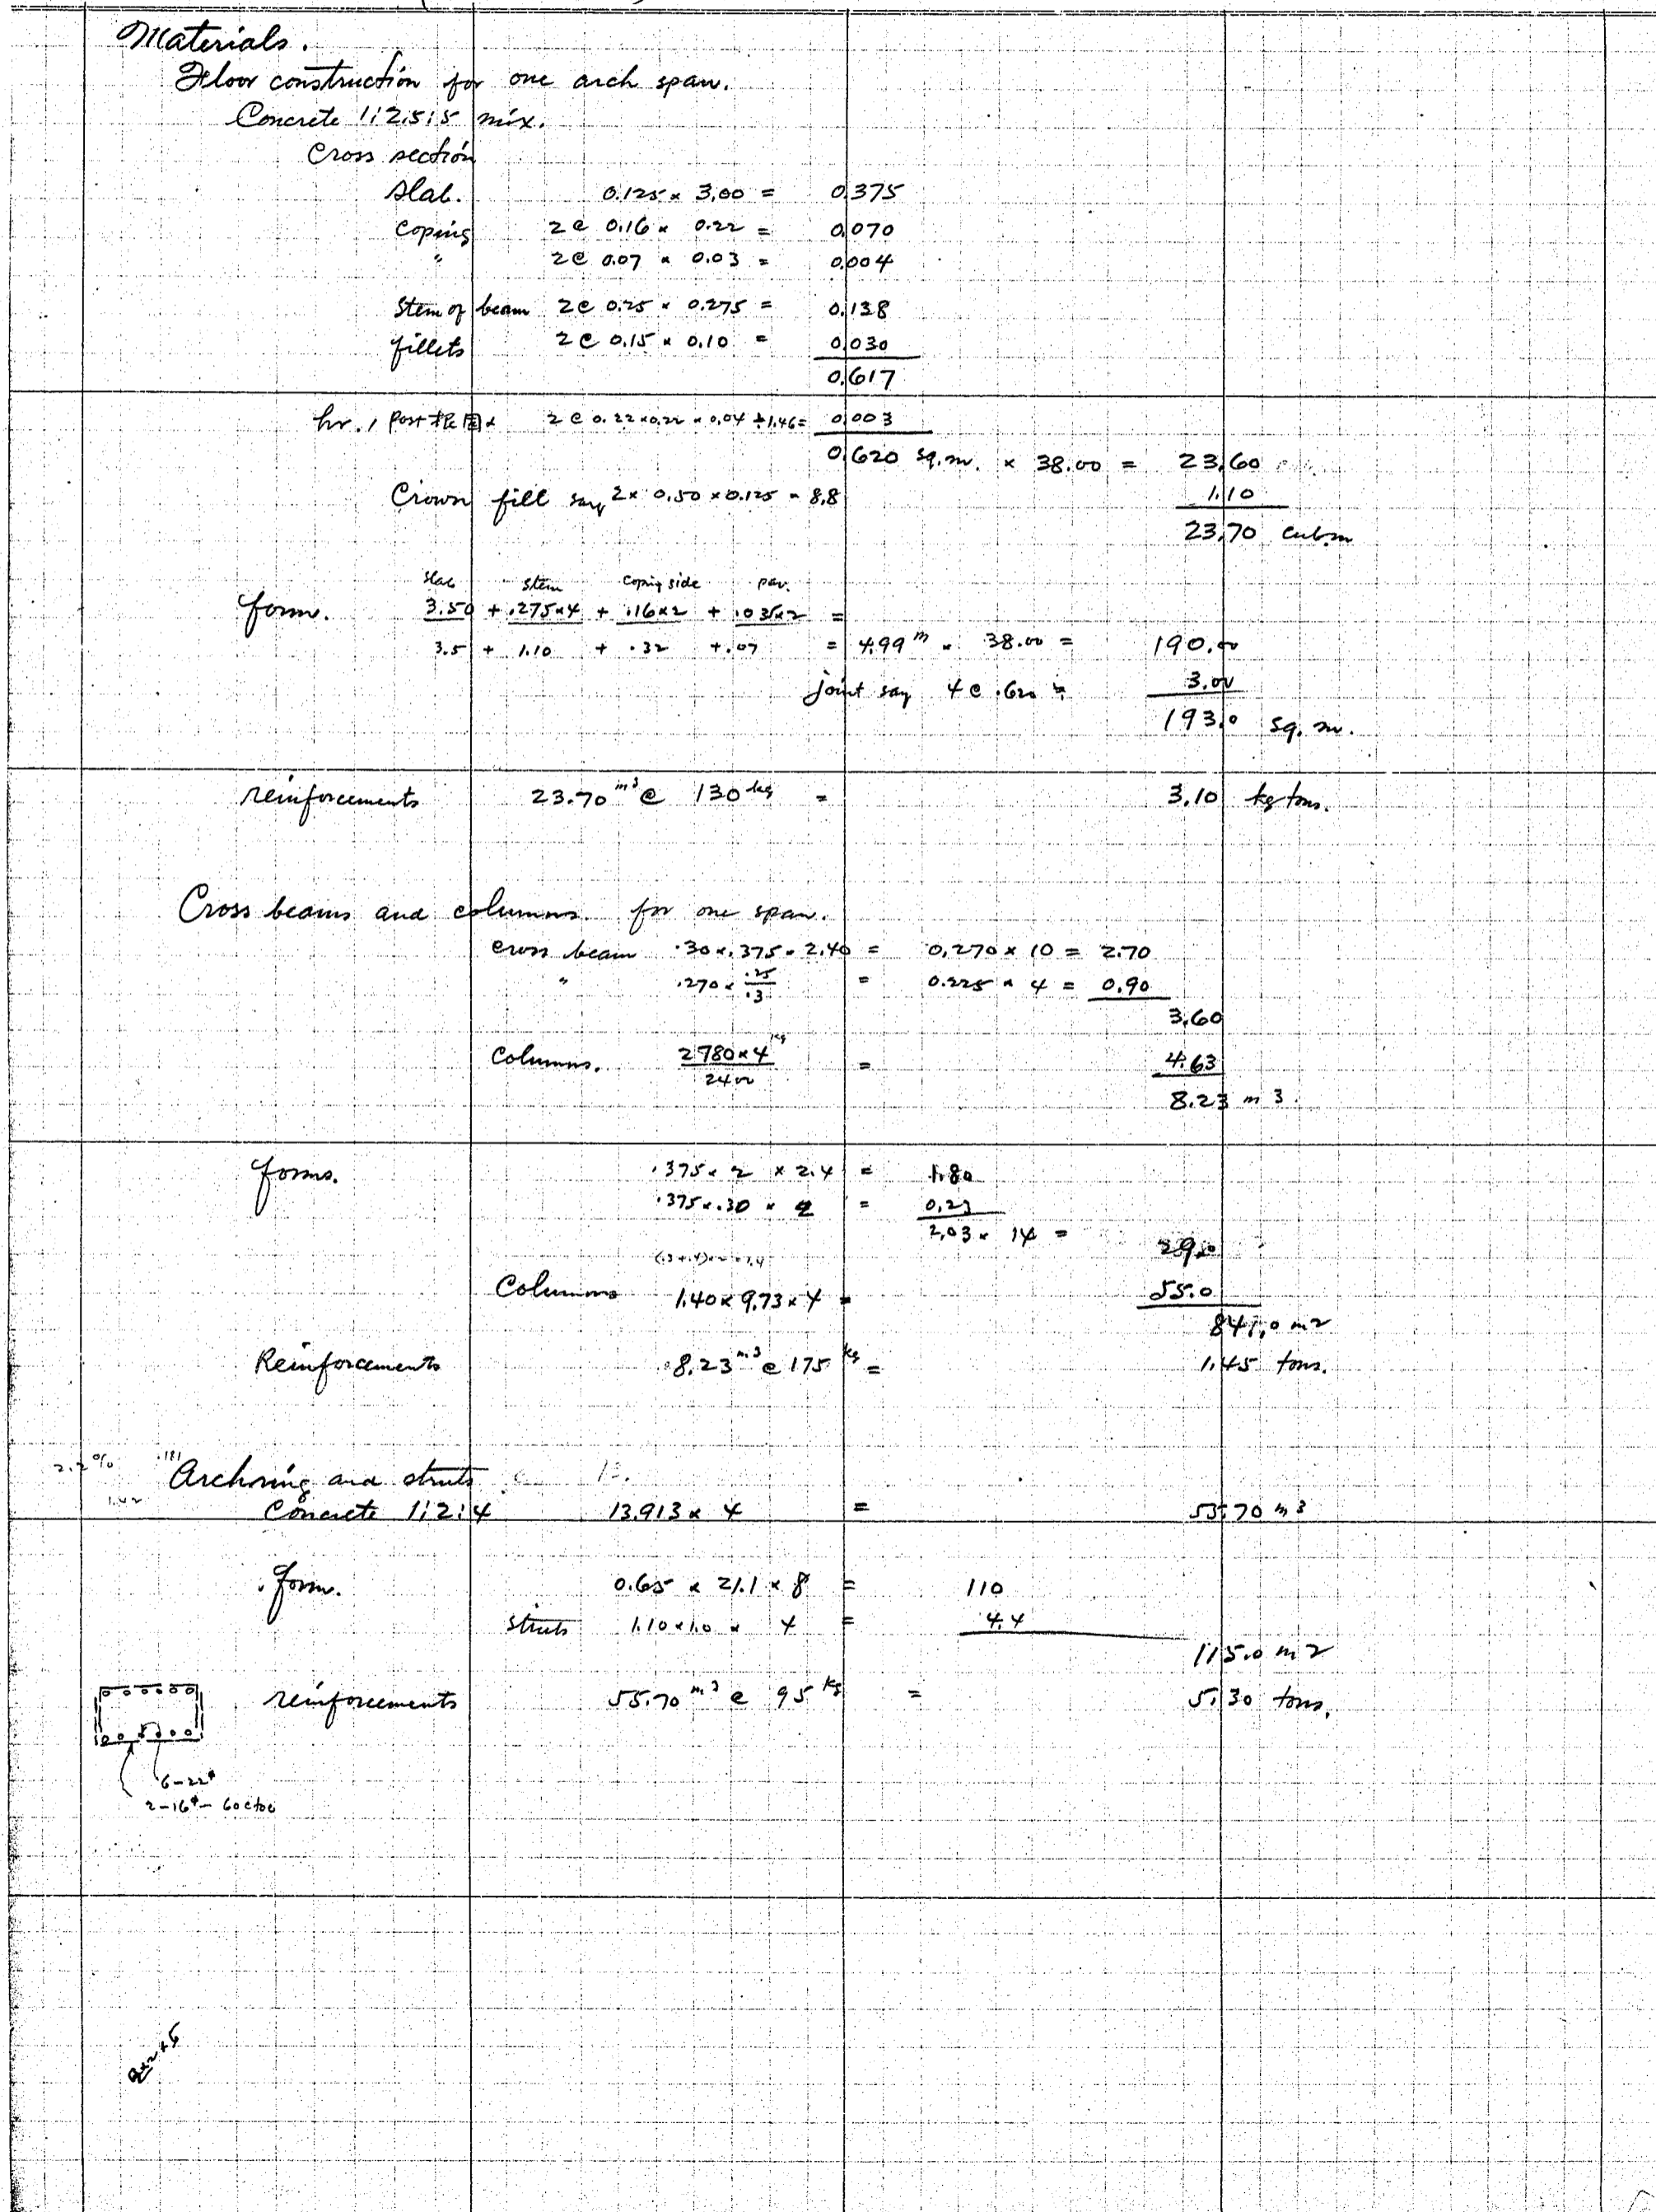 Materials.
Floor construction for one arch span.
Concrete 1:2.5:5 mix.
Cross section
Slab. 0.125 x 3.00 = 0.375
Coping 2@ 0.16 x 0.22 = 0.070
" 2@ 0.07 x 0.03 = 0.004
Stem of beam 2@ 0.25 x 0.275 = 0.138
fillets 2@ 0.15 x 0.10 = 0.030
0.617
hr. / Post 2@ 0.22 x 0.22 x 0.04 ÷ 1.46 = 0.003
0.620 sq.m. x 38.00 = 23.60
Crown fill say 2 x 0.50 x 0.125 x 8.8 1.10
23.70 cub.m
slab stem coping side pav.
form. 3.50 + .275x4 + .16x2 + .035x2 =
3.5 + 1.10 + .32 + .07 = 4.99 m x 38.00 = 190.00
joint say 4@ .620 = 3.00
193.0 sq. m.
reinforcements 23.70 m3 @ 130 kg = 3.10 kg tons.
Cross beams and columns. for one span.
cross beam .30 x .375 x 2.40 = 0.270 x 10 = 2.70
" .270 x .25/.3 = 0.225 x 4 = 0.90
3.60
Columns. 2780 x 4 kg / 2400 = 4.63
8.23 m3.
forms. .375 x 2 x 2.4 = 1.80
.375 x .30 x 2 = 0.23
2.03 x 14 = 29.0
Columns 1.40 x 9.73 x 4 = 55.0
84.0 m2
Reinforcements 8.23 m3 @ 175 kg = 1.45 tons.
2.2% .181
Archring and struts
1.42
Concrete 1:2:4 13.913 x 4 = 55.70 m3
form. 0.65 x 21.1 x 8 = 110
struts 1.10 x 1.0 x 4 = 4.4
115.0 m2
reinforcements 55.70 m3 @ 95 kg = 5.30 tons.
6-22φ
2-16φ- 60 ctoc